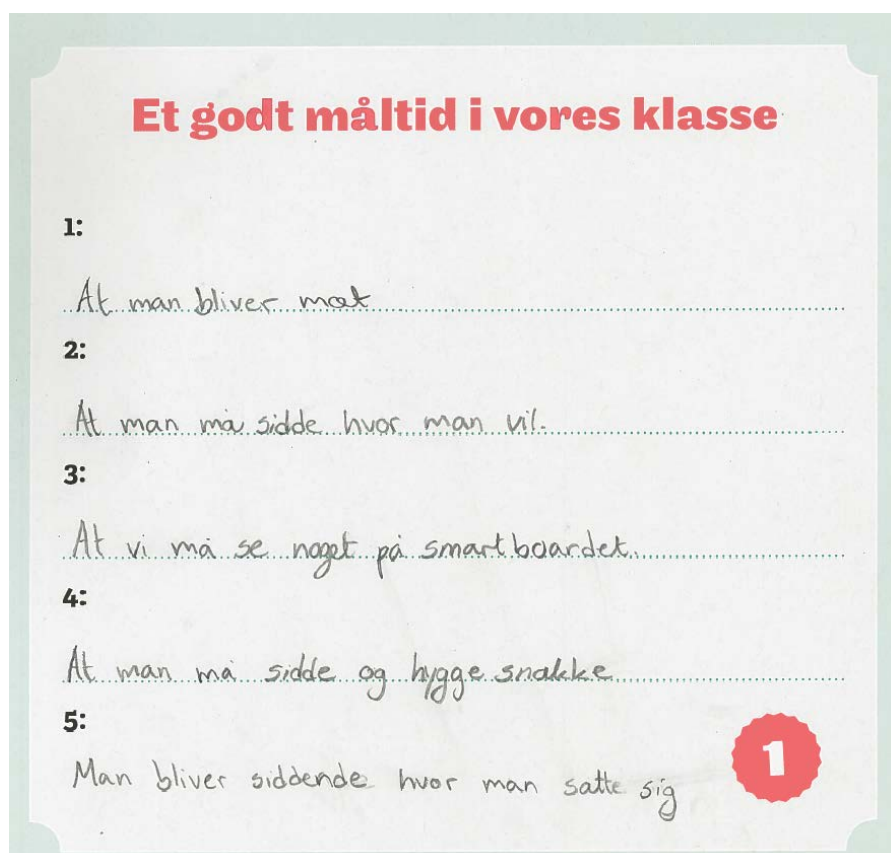 Et godt måltid i vores klasse
1:
At man bliver mæt
2:
At man må sidde hvor man vil.
3:
At vi må se noget på smartboardet.
4:
At man må sidde og hygge snakke
5:
Man bliver siddende hvor man satte sig
1